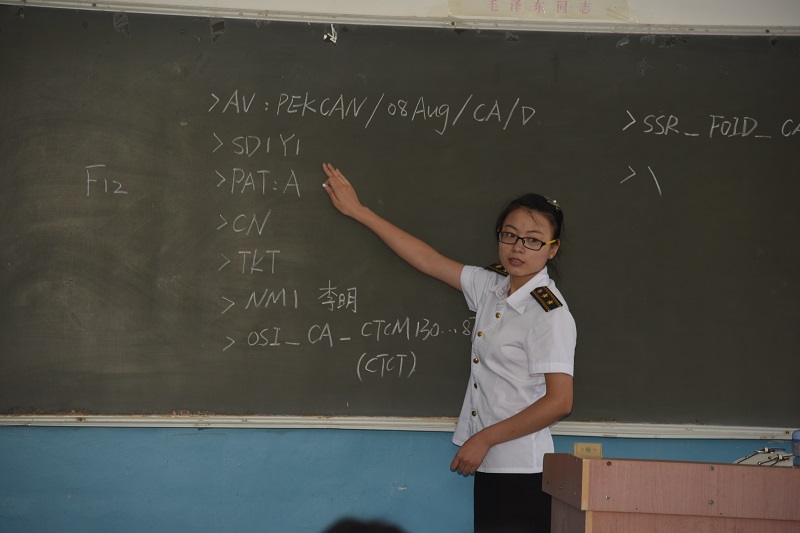 毛泽东同志
>AV:PEKCAN/08Aug/CA/D
>SD1Y1
>PAT:A
>CN
>TKT
>NM1 李明
>OSI_CA_CTCM130...8
(CTCT)
F12
>SSR_FOID_CA
>\